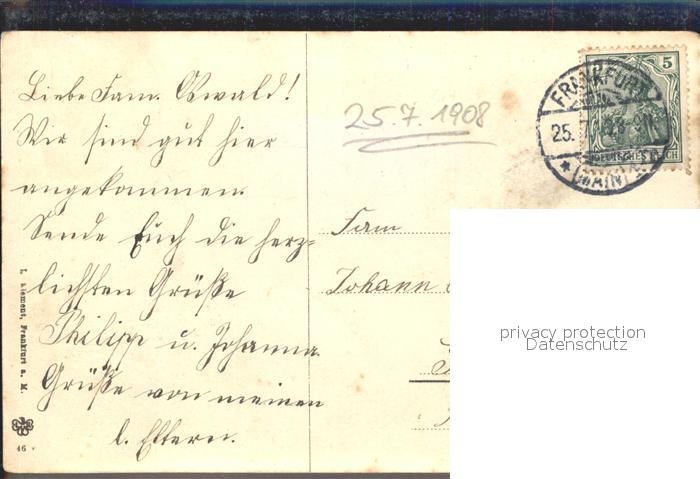 Liebe Fam. Oswald!
Wir sind gut hier
angekommen.
Sende Euch die herz=
lichsten Grüße
Philipp u. Johanna.
Grüße von meinen
l. Eltern.
25.7.1908
FRANKFURT
25.
(MAIN)
5
DEUTSCHES REICH
Fam
Johann
L. Klement, Frankfurt a. M.
46
privacy protection
Datenschutz